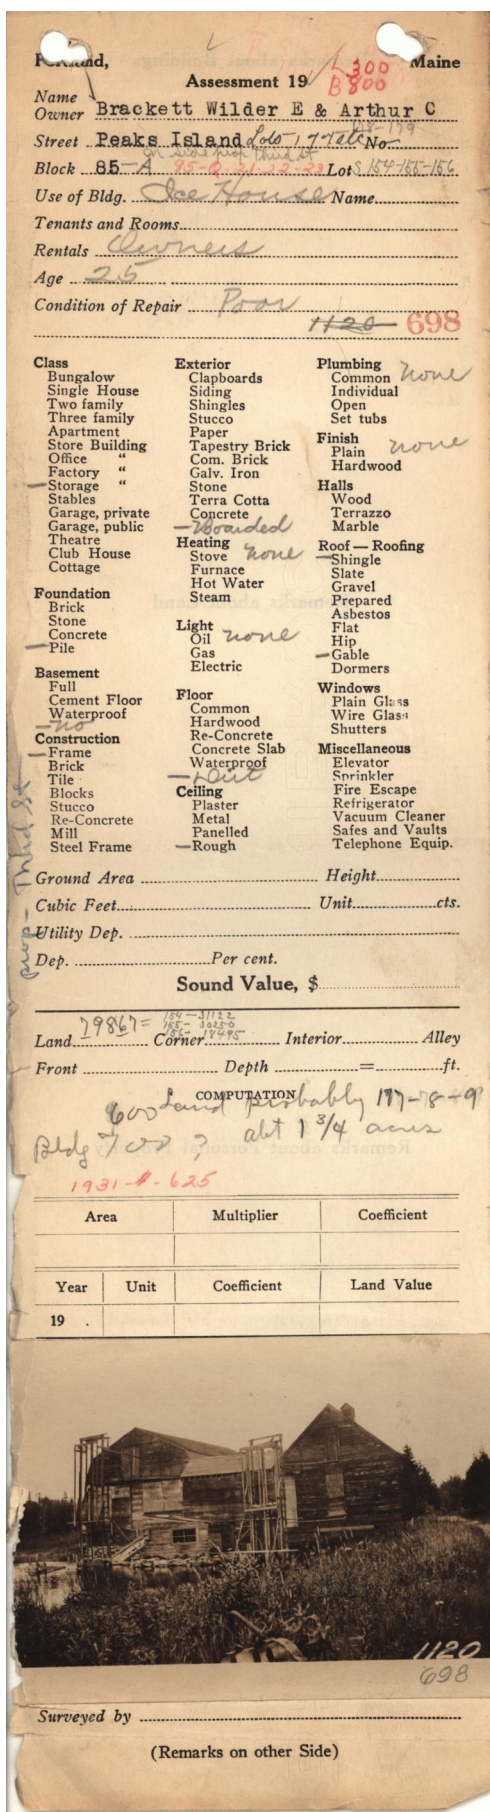 Portland, Maine
L 300
Assessment 19
B 800
Name
Owner Brackett Wilder E & Arthur C
178-179
Street Peaks Island Lots 177 etc No.
on side prop Third St
Block 85-A 95-Q-21-22-23 Lots 154-155-156
Use of Bldg. Ice House Name
Tenants and Rooms
Rentals Owners
Age 25
Condition of Repair Poor
1120 698
Class
Bungalow
Single House
Two family
Three family
Apartment
Store Building
Office "
Factory "
—Storage "
Stables
Garage, private
Garage, public
Theatre
Club House
Cottage
Foundation
Brick
Stone
Concrete
—Pile
Basement
Full
Cement Floor
Waterproof
—no
Construction
—Frame
Brick
Tile
Blocks
Stucco
Re-Concrete
Mill
Steel Frame
Exterior
Clapboards
Siding
Shingles
Stucco
Paper
Tapestry Brick
Com. Brick
Galv. Iron
Stone
Terra Cotta
Concrete
—Boarded
Heating
Stove none
Furnace
Hot Water
Steam
Light
Oil none
Gas
Electric
Floor
Common
Hardwood
Re-Concrete
Concrete Slab
Waterproof
—Dirt
Ceiling
Plaster
Metal
Panelled
—Rough
Plumbing
Common none
Individual
Open
Set tubs
Finish
Plain none
Hardwood
Halls
Wood
Terrazzo
Marble
Roof—Roofing
—Shingle
Slate
Gravel
Prepared
Asbestos
Flat
Hip
—Gable
Dormers
Windows
Plain Glass
Wire Glass
Shutters
Miscellaneous
Elevator
Sprinkler
Fire Escape
Refrigerator
Vacuum Cleaner
Safes and Vaults
Telephone Equip.
prop- Third St
Ground Area Height
Cubic Feet Unit cts.
Utility Dep.
Dep. Per cent.
Sound Value, $
154-31122
155-30250
156-18495
Land 79867= Corner Interior Alley
Front Depth = ft.
COMPUTATION
600 Land probably 177-78-9
Bldg 700 ? abt 1 3/4 acres
1931-#-625
Area Multiplier Coefficient
Year Unit Coefficient Land Value
19 .
1120
698
Surveyed by
(Remarks on other Side)